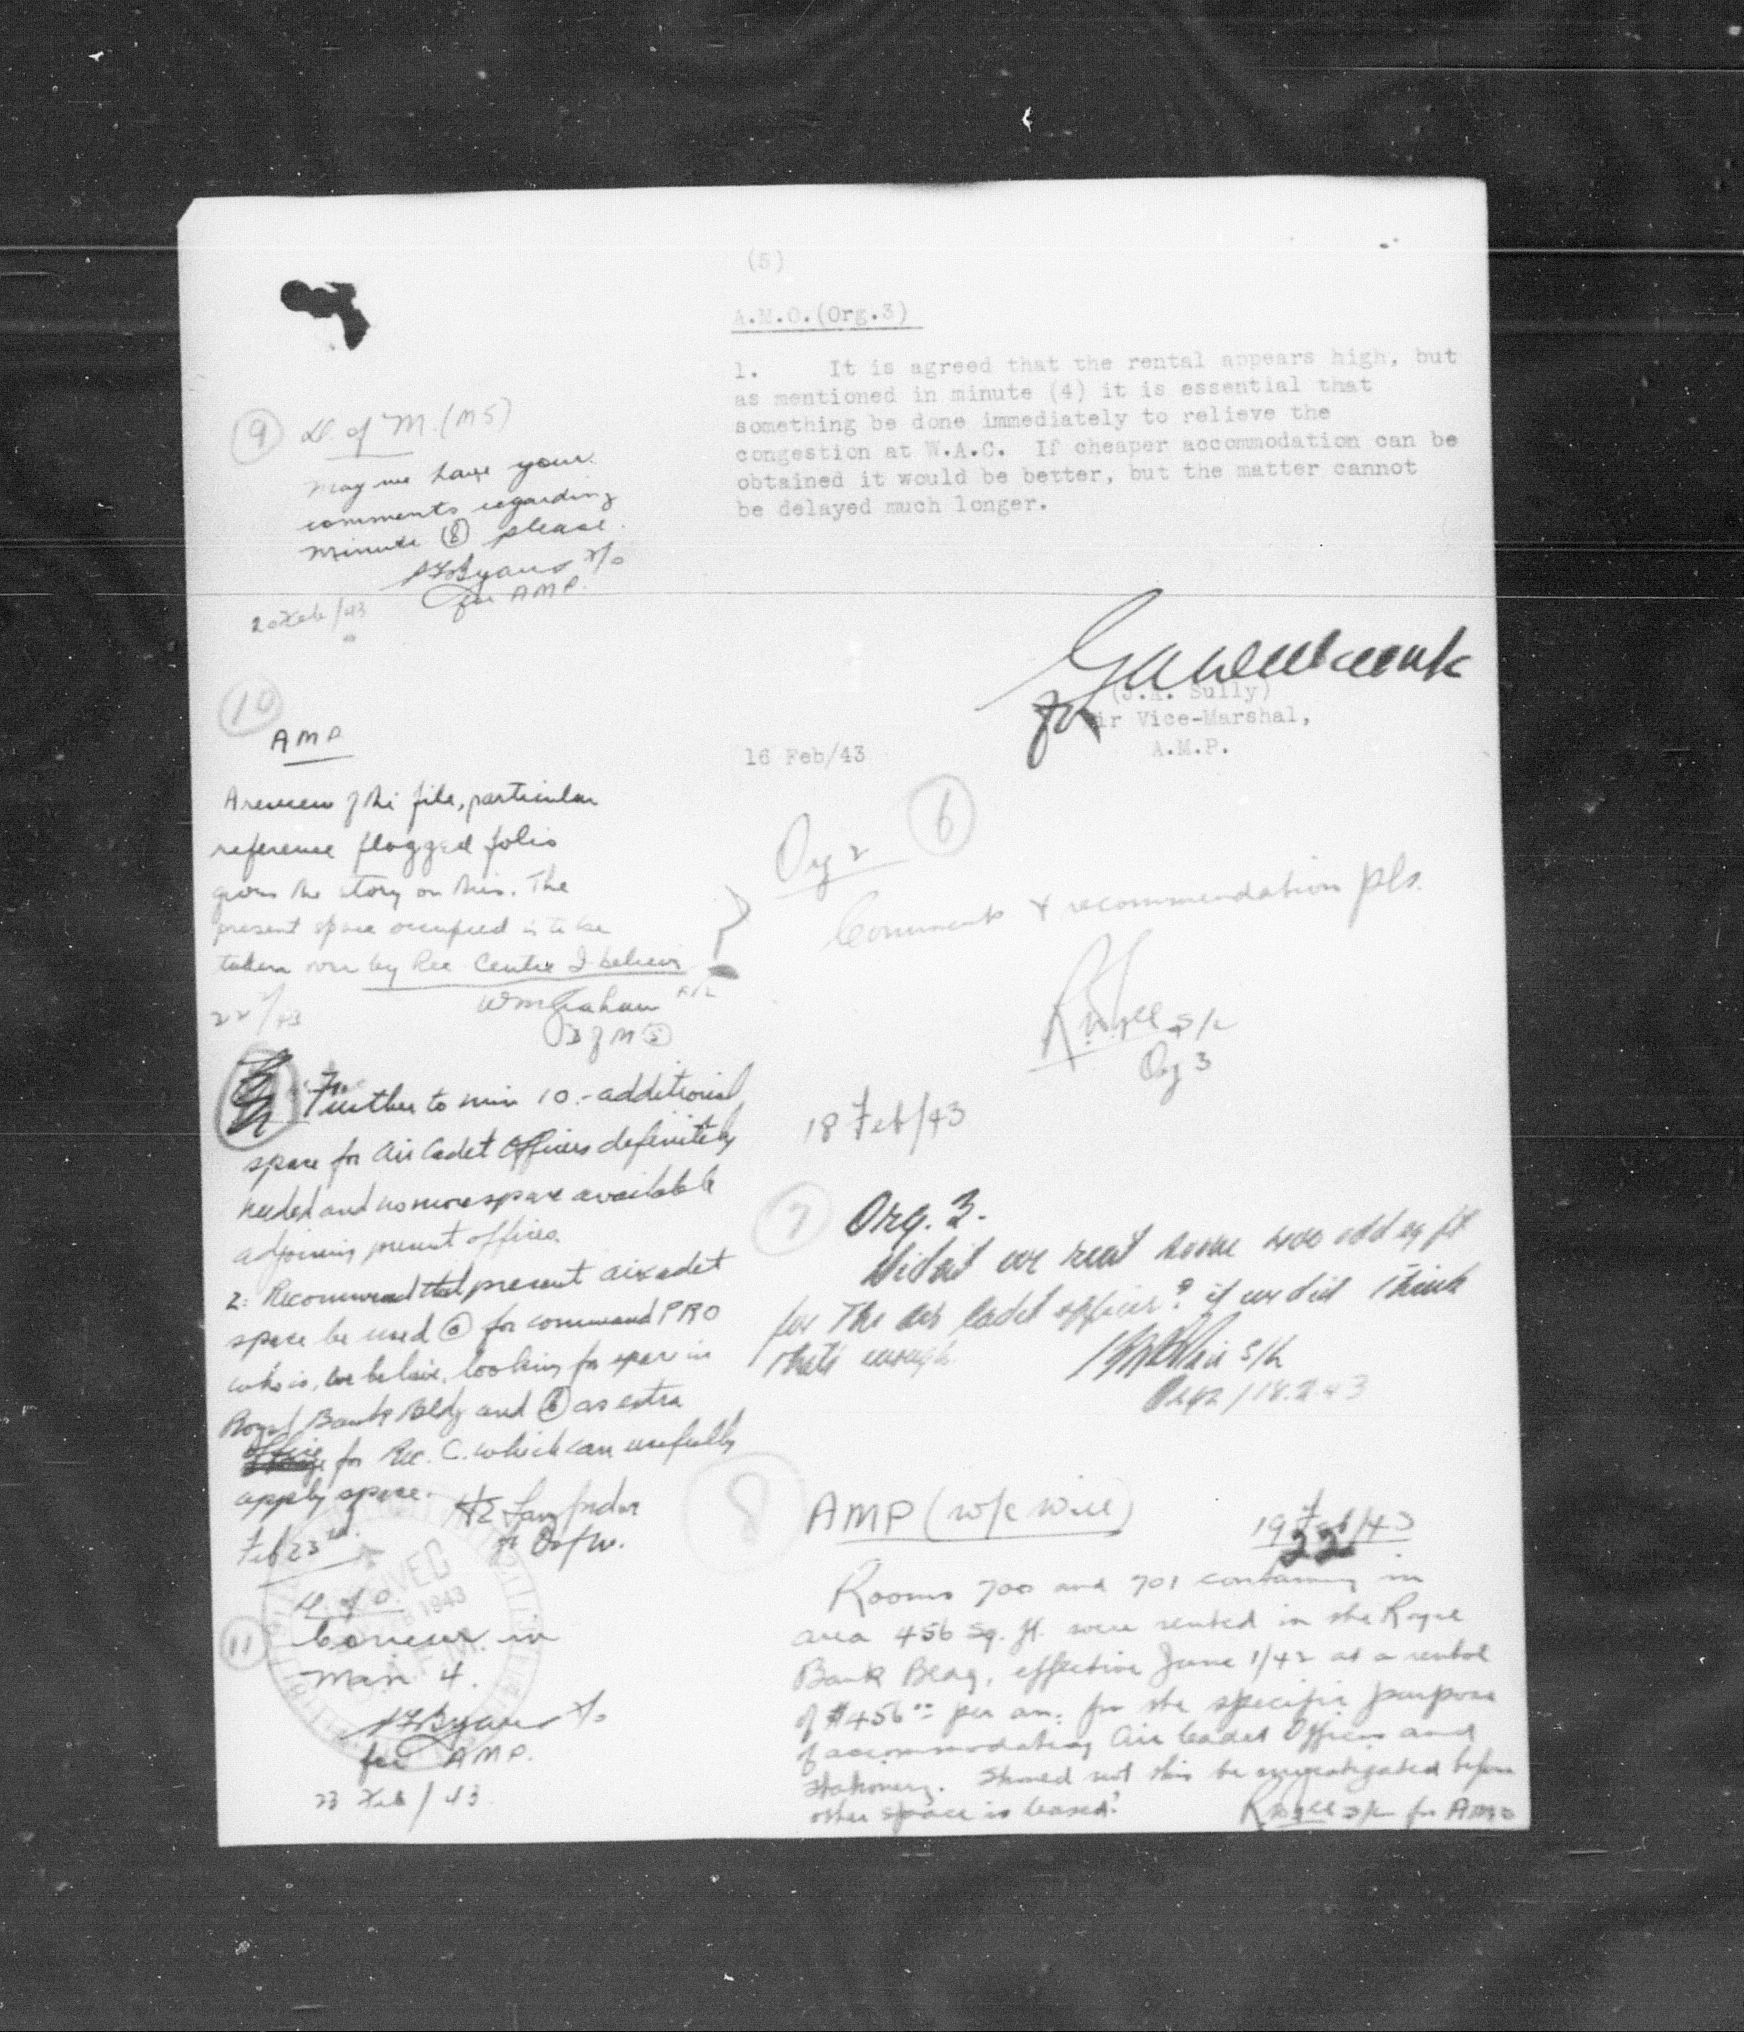 (5)
A.M.O.(Org.3)
1. It is agreed that the rental appears high, but
as mentioned in minute (4) it is essential that
something be done immediately to relieve the
congestion at W.A.C. If cheaper accommodation can be
obtained it would be better, but the matter cannot
be delayed much longer.
for
(J.A. Sully)
Air Vice-Marshal,
A.M.P.
16 Feb/43
6
Org 2
Comments & recommendation pls.
S/L
Org 3
18 Feb/43
7
Org. 3.
Didn't we rent some 400 odd sq ft
for the air cadet officer? if we did I think
that's enough.
S/L
Org 2 / 18.2.43
8
AMP (W/C Will)
19 Feb/43
22
Rooms 700 and 701 containing in
area 456 sq. ft. were rented in the Royal
Bank Bldg, effective June 1/42 at a rental
of $456.00 per an. for the specific purpose
of accommodating Air Cadet Officers and
stationery. Should not this be investigated before
other space is leased?
S/L for AMO
9
D. of M. (M5)
May we have your
comments regarding
minute 8 please.
for AMP.
20 Feb/43
10
AMP
A review of the file, particular
reference flagged folio
gives the story on this. The
present space occupied is to be
taken over by Rec Centre I believe
WmGraham F/L
D of M 5
22/2/43
Further to min 10 - additional
space for Air Cadet Officers definitely
needed and no more space available
adjoining present offices.
2. Recommend that present air cadet
space be used (a) for command PRO
who is, we believe, looking for space in
Royal Bank Bldg and (b) as extra
office for Rec. C. which can usefully
apply space.
Feb 23rd
11
Concur in
Min 4.
for AMP.
23 Feb/43